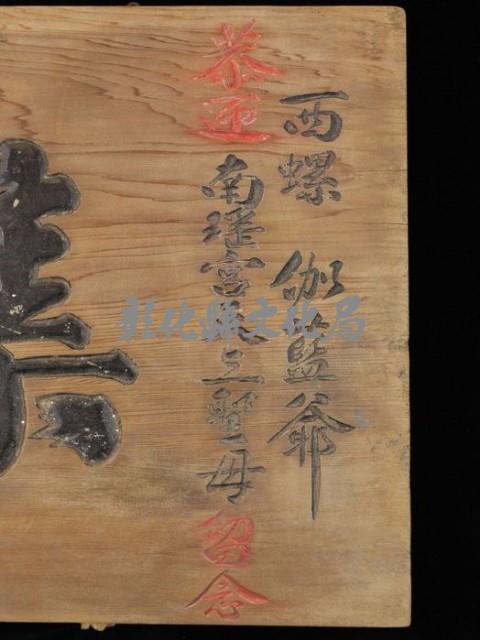 西螺 伽藍爺
恭迎 南瑤宮老三聖母 留念
彰化縣文化局